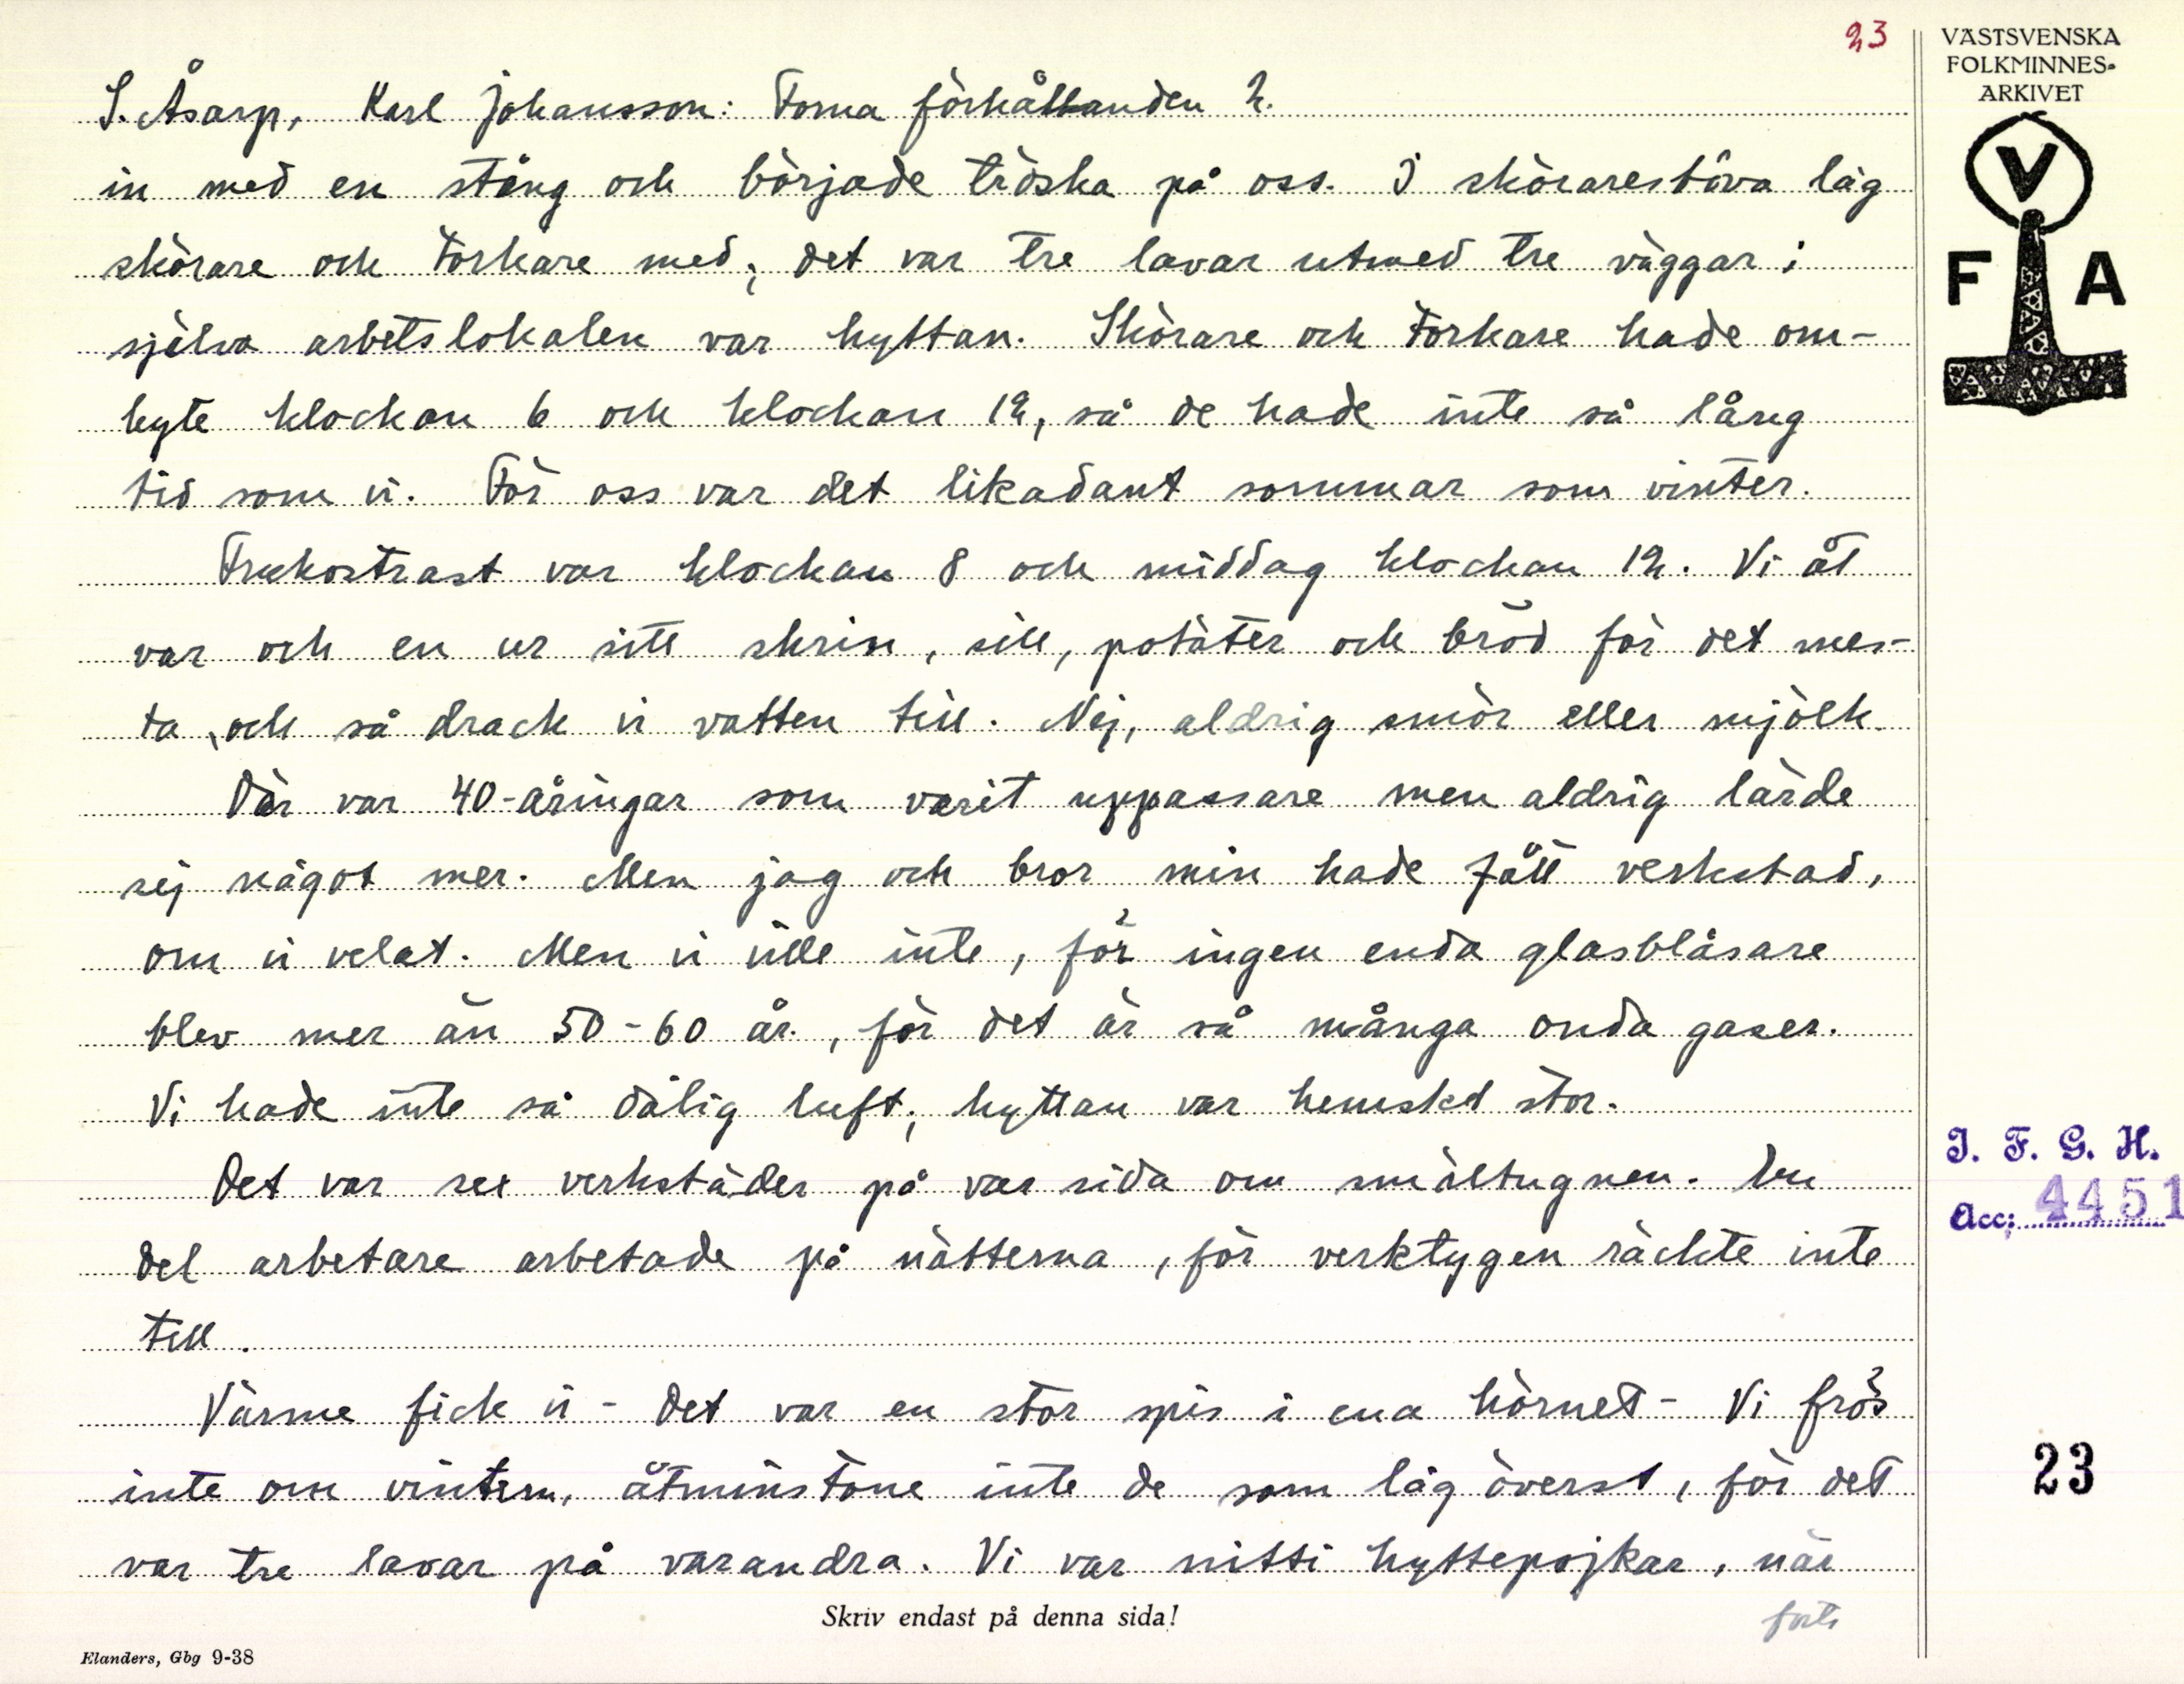 23
S. Åsarp, Karl Johansson: Forna förhållanden 2.
in med en stång och började tröska på oss. I skörarestôva låg
skörare och torkare med; det var tre lavar utmed tre väggar i
själva arbetslokalen var hyttan. Skörare och torkare hade om-
byte klockan 6 och klockan 12, så de hade inte så lång
tid som vi. För oss var det likadant sommar som vinter.
Frukostrast var klockan 8 och middag klockan 12. Vi åt
var och en ur sitt skrin, sill, potäter och bröd för det mes-
ta, och så drack vi vatten till. Nej, aldrig smör eller mjölk.
Där var 40-åringar som varit uppassare men aldrig lärde
sej något mer. Men jag och bror min hade fått verkstad,
om vi velat. Men vi ville inte, för ingen enda glasblåsare
blev mer än 50-60 år, för det är så många onda gaser.
Vi hade inte så dålig luft; hyttan var hemskt stor.
Det var sex verkstäder på var sida om smältugnen. En
del arbetare arbetade på nätterna, för verktygen räckte inte
till.
Värme fick vi - Det var en stor spis i ena hörnet - Vi frös
inte om vintern, åtminstone inte de som låg överst, för det
var tre lavar på varandra. Vi var nitti hyttepojkar, när
forts
Skriv endast på denna sida!
Elanders, Gbg 9-38
VÄSTSVENSKA
FOLKMINNES-
ARKIVET
V
F A
I. F. G. H.
Acc: 4451
23